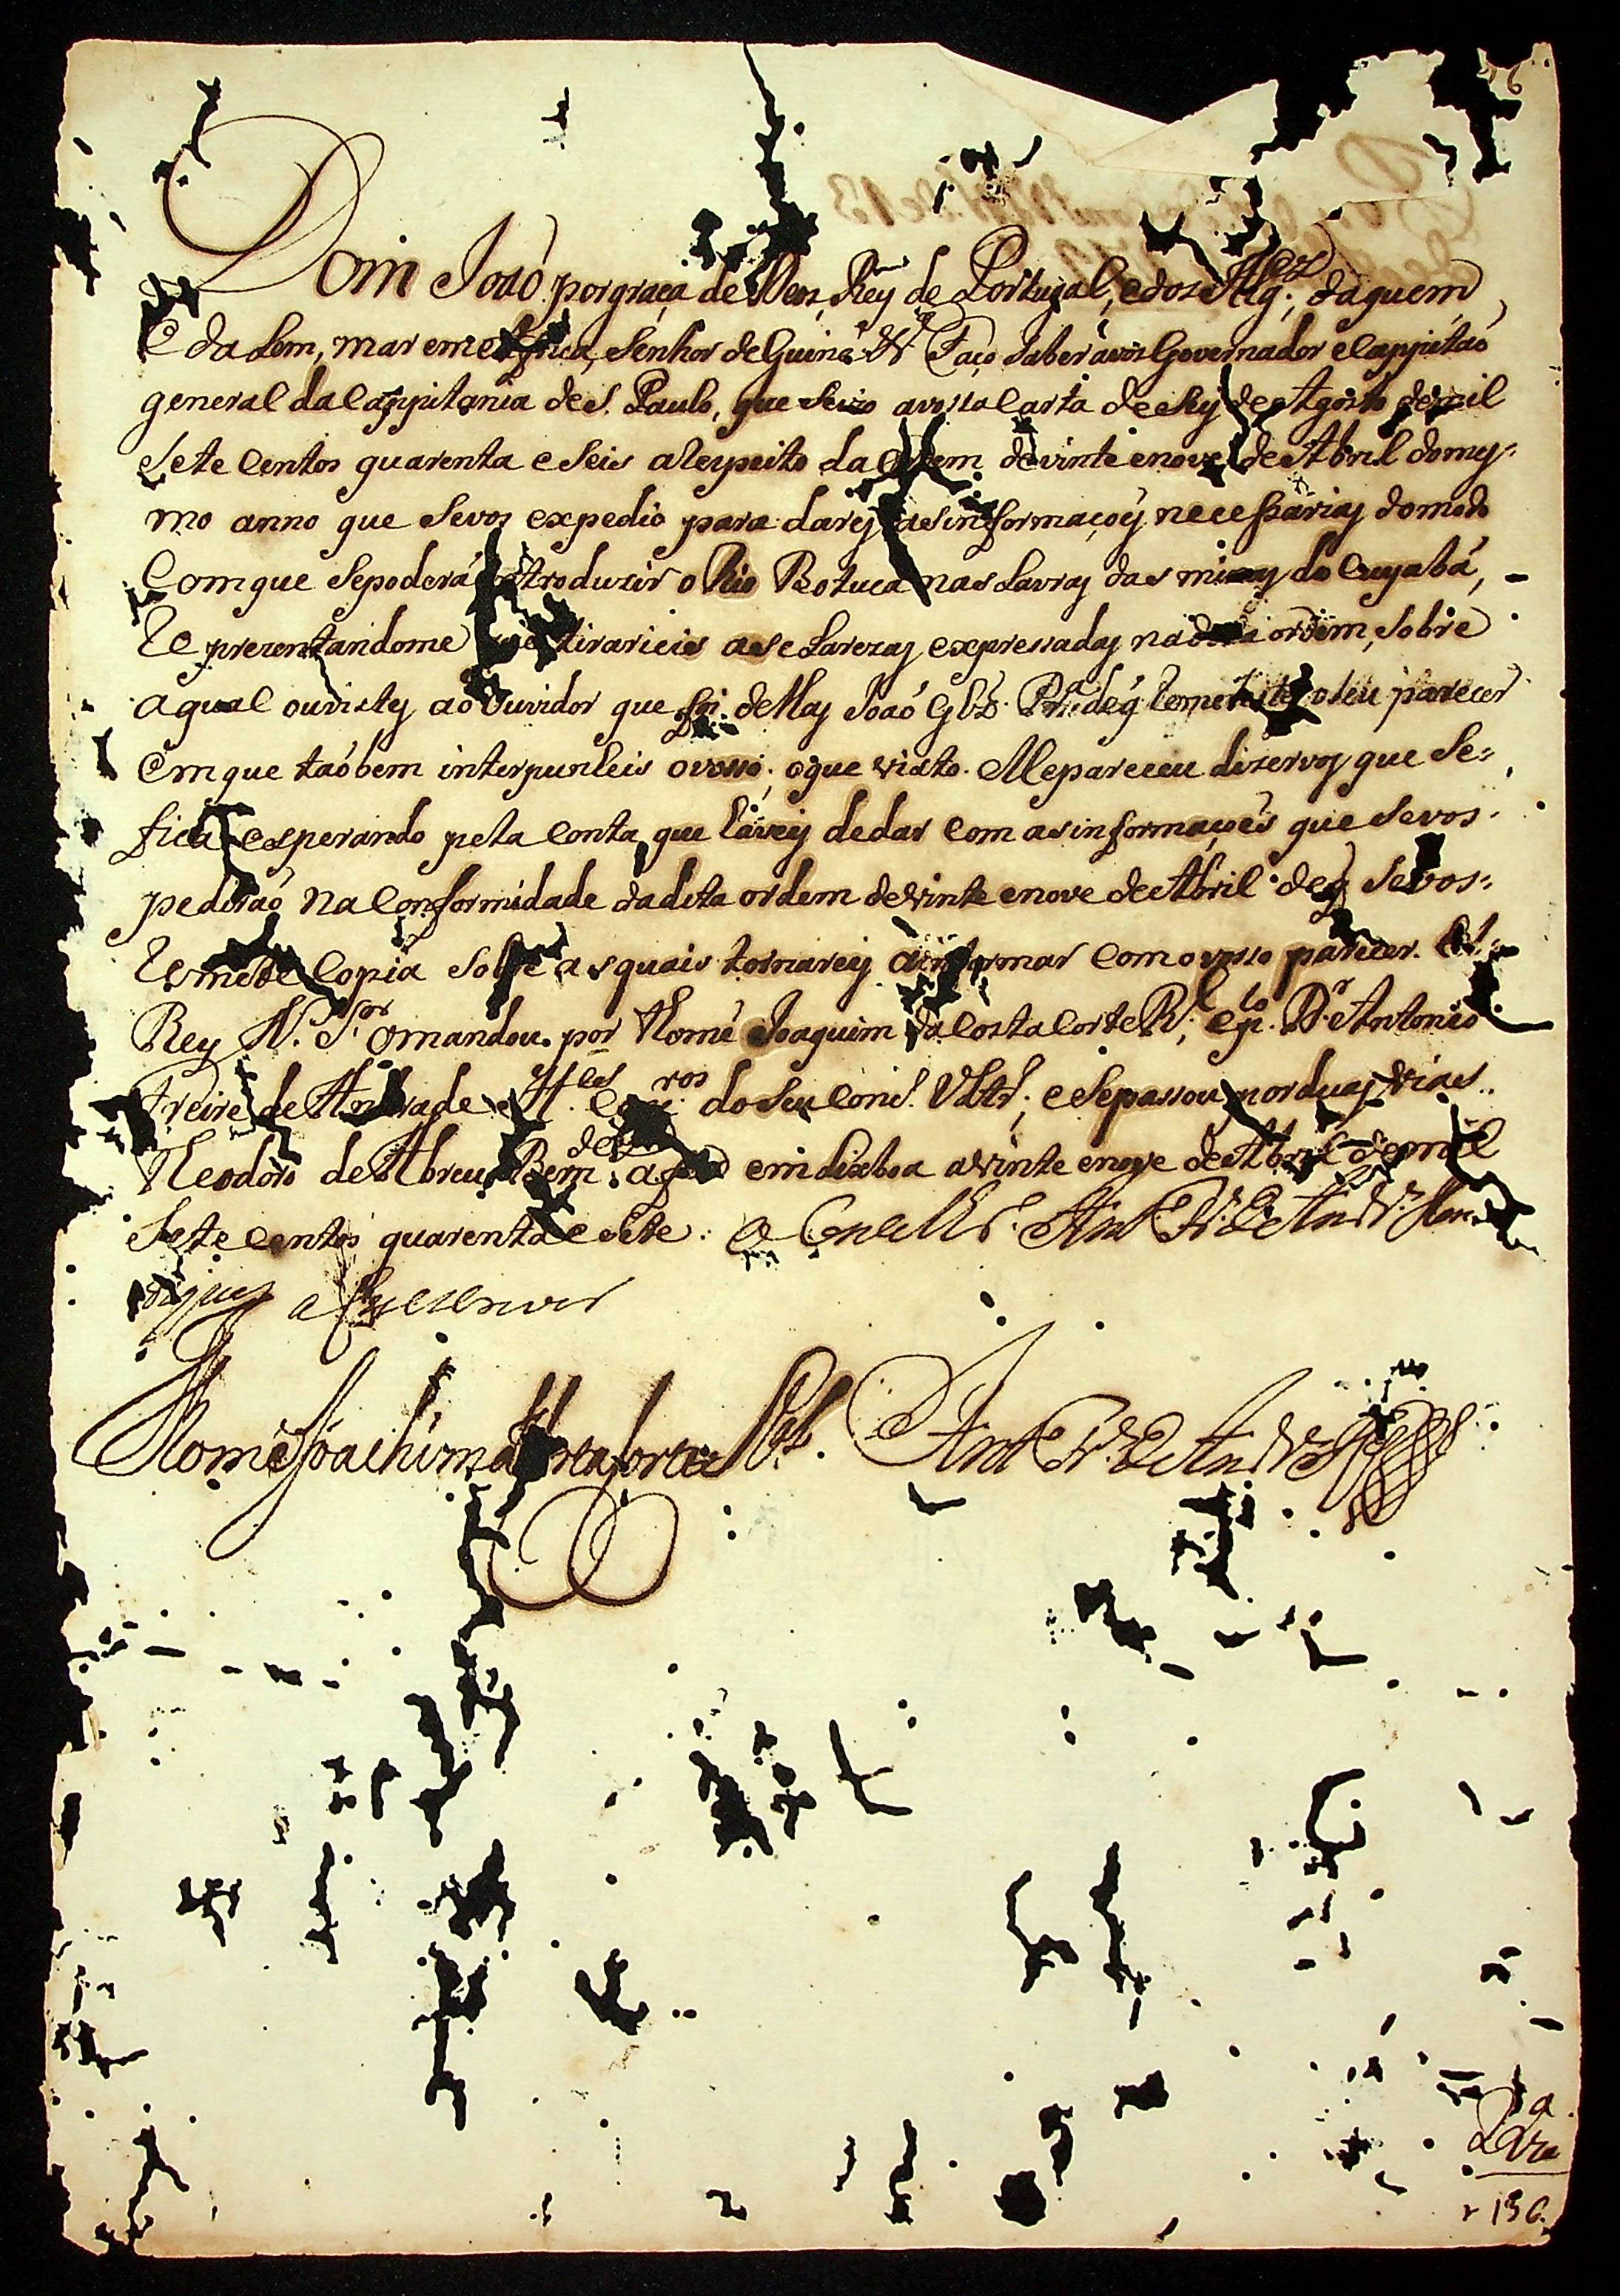 Dom João por graça de Deos, Rey de Portugal, e dos Alg.es daquem,
e dalem, mar em Africa, Senhor de Guiné &c.ª Faço saber a vós Governador e Cappitão
general da Cappitania de S. Paulo, que se vio a vossa Carta de seiz de Agosto de mil
e sete centos quarenta e seis a respeito da ordem de vinte e nove de Abril do mes-
mo anno que se vos expedio para dares as informaçoẽs necessarias do modo
com que se poderá introduzir o Rio Botuca nas Lavras das minas do Cuyabá,
reprezentandome que tirarieis as clarezas expressadas na dita ordem, sobre
a qual ouvistes ao Ouvidor que foi dellas João Glz. Pr.ª de q̃ remetestes o seu parecer
em que tãobem interpunheis o vosso; o que visto. Me pareceu dizervos que se-
fica esperando pela conta que haveis de dar com as informaçoẽs que se vos-
pedirão na conformidade da dita ordem de vinte e nove de Abril de q̃ se vos-
remete copia sobre as quais tornareis a informar com o vosso parecer. El-
Rey N. S.or o mandou por Thomé Joaquim da Costa Corte R.l e p.lo D.or Antonio
Freire de Andrade Henr.es Cons.ros do seu Cons.º Ultr.º, e se passou por duas vias.
Theodoro de Abreu Bern.des a fes em Lixboa a vinte e nove de Abril de mil
sete centos quarenta e sete.
a fez escrever
Thome Joachim da Costa Corte Rl. Ant.º Fr.e de Andr.e Henr.es
1.a
Via